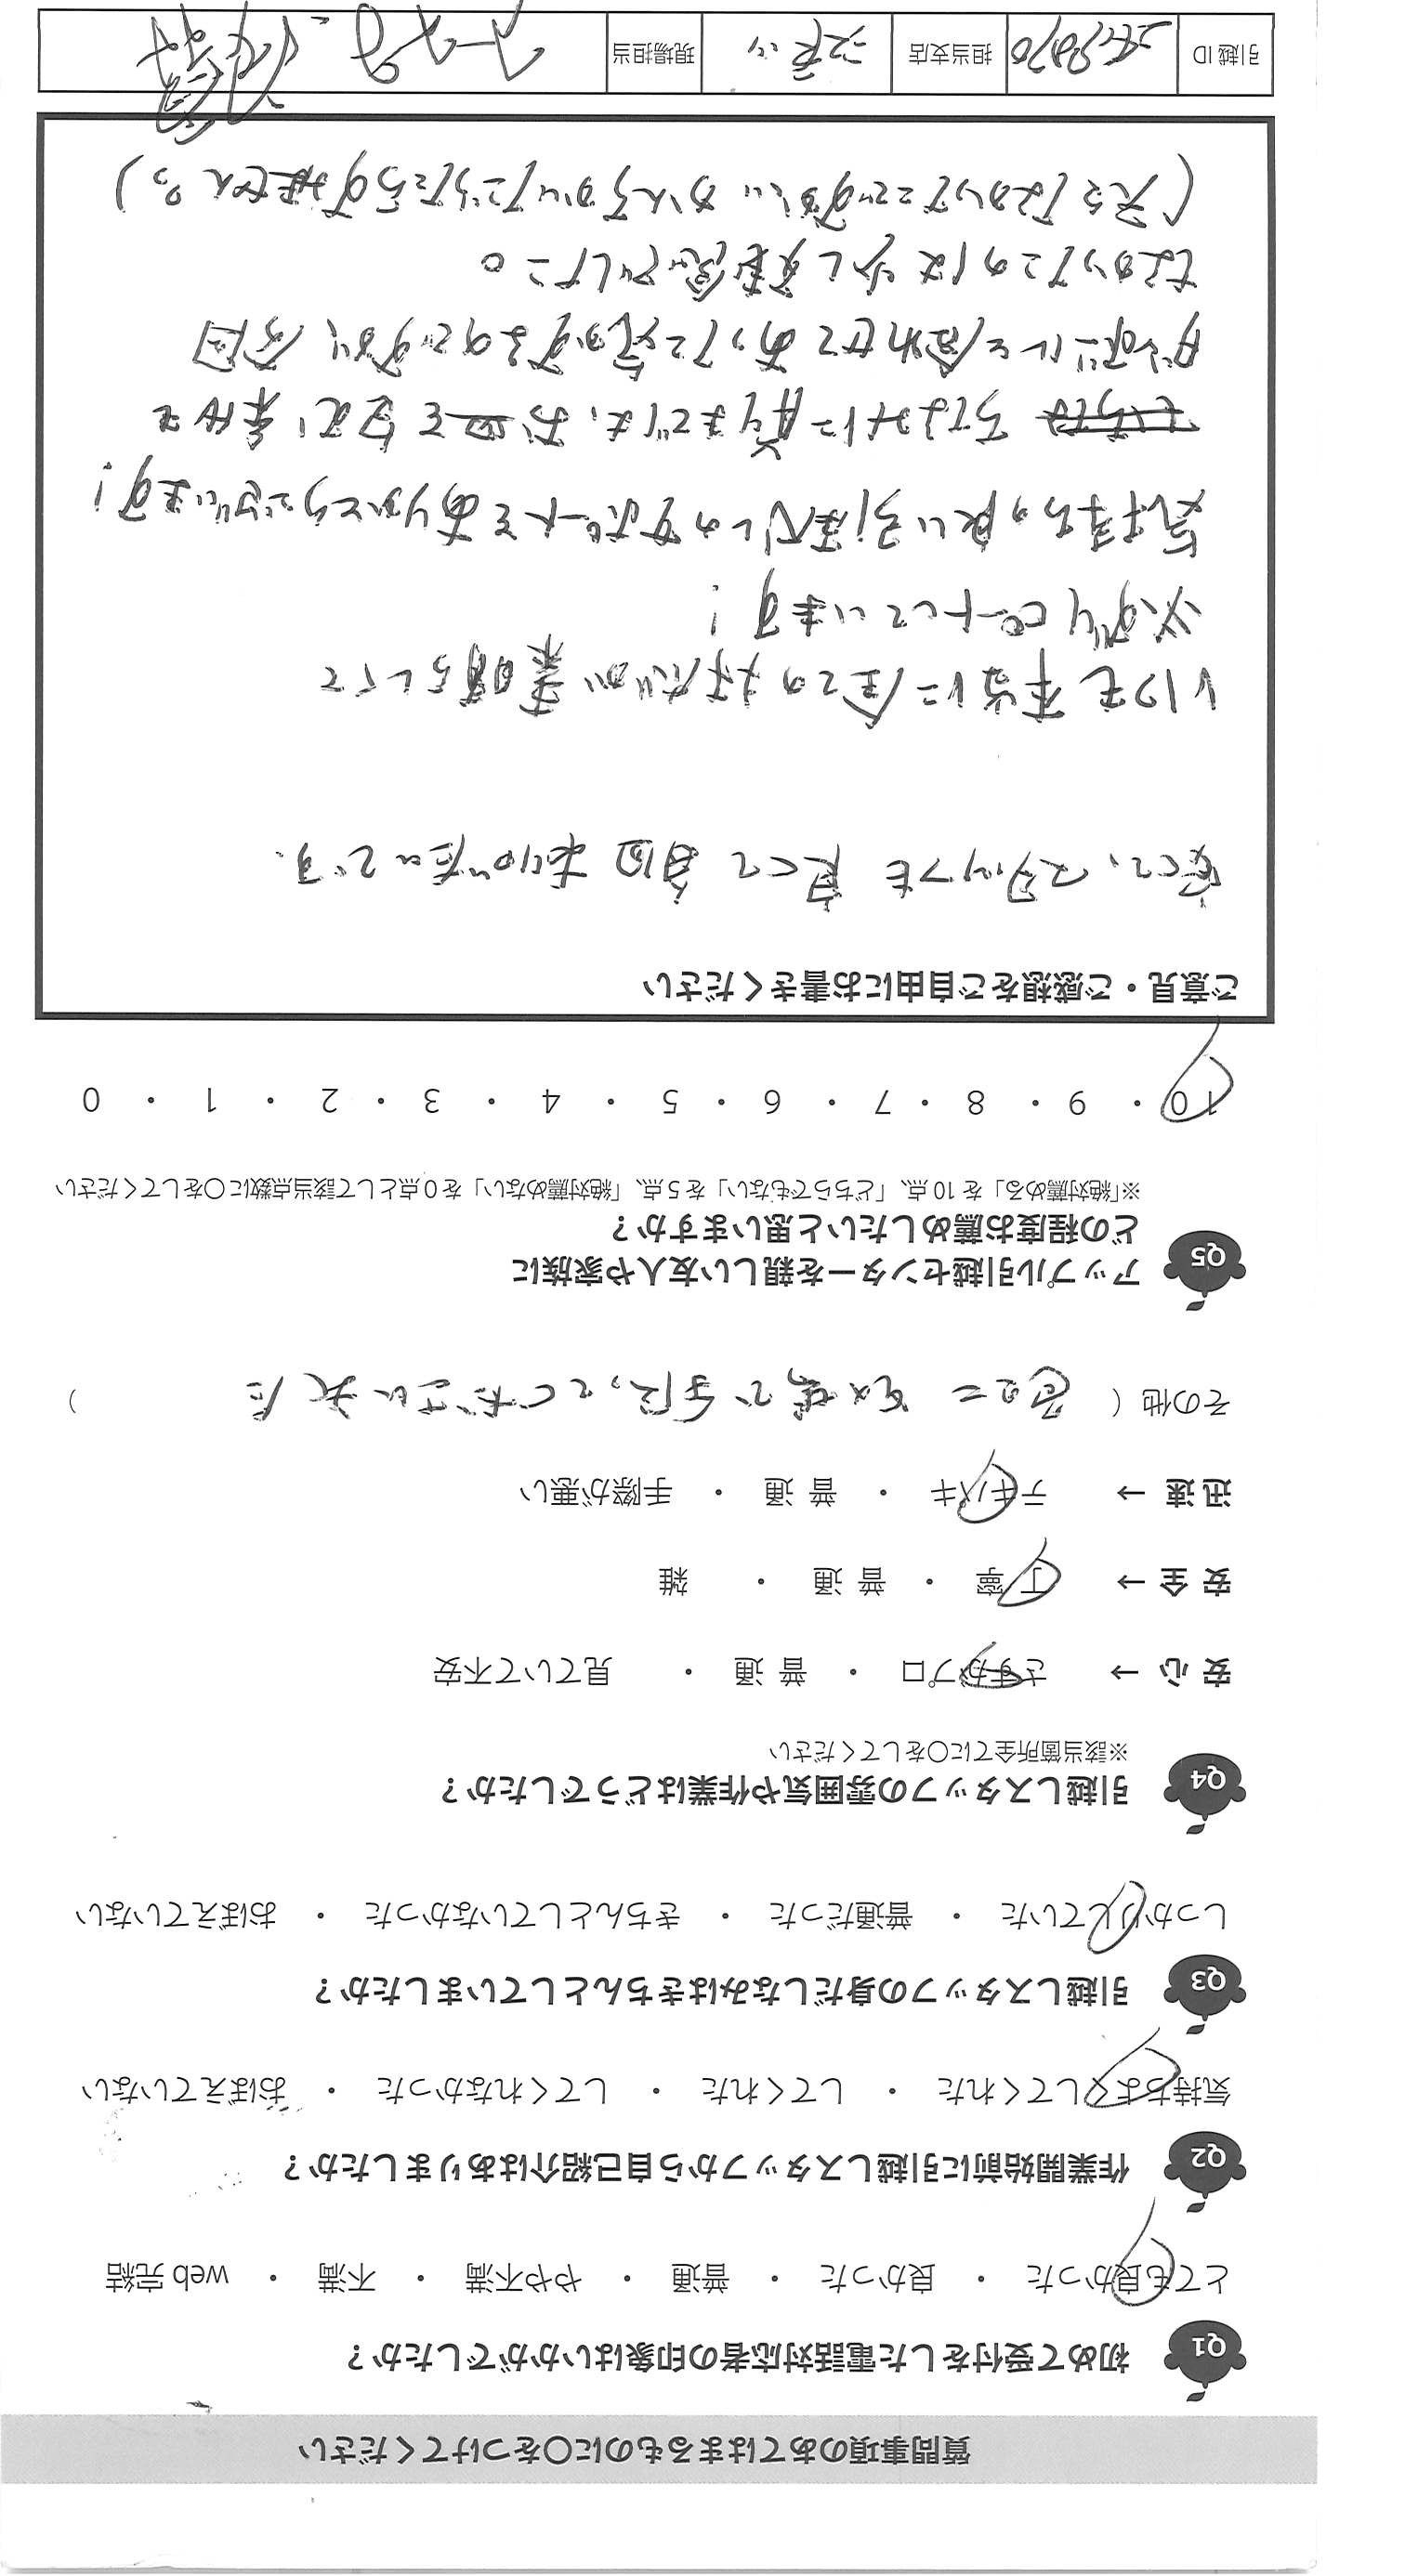 質問事項のあてはまるものに〇をつけてください
Q1 初めて受付をした電話対応者の印象はいかがでしたか？
とても良かった ・ 良かった ・ 普通 ・ やや不満 ・ 不満 ・ web 完結
Q2 作業開始前に引越しスタッフから自己紹介はありましたか？
気持ちよくしてくれた ・ してくれた ・ してくれなかった ・ おぼえていない
Q3 引越しスタッフの身だしなみはきちんとしていましたか？
しっかりとしていた ・ 普通だった ・ きちんとしていなかった ・ おぼえていない
Q4 引越しスタッフの雰囲気や作業はどうでしたか？
※該当箇所全てに〇をしてください
安心 → さすがプロ ・ 普通 ・ 見ていて不安
安全 → 丁寧 ・ 普通 ・ 雑
迅速 → テキパキ ・ 普通 ・ 手際が悪い
その他（ 色々と て下さいました ）
Q5 アップル引越センターを親しい友人や家族に
どの程度お薦めしたいと思いますか？
※「絶対薦める」を 10 点、「どちらでもない」を 5 点、「絶対薦めない」を 0 点として該当点数に〇をしてください
10 ・ 9 ・ 8 ・ 7 ・ 6 ・ 5 ・ 4 ・ 3 ・ 2 ・ 1 ・ 0
ご意見・ご感想をご自由にお書きください
安くて、スタッフも良くて毎回ありがたいです.
いつも本当に全ての対応が素晴らしくて
必ずリピートしています！
気持ちの良い引越しのサポートをありがとうございます！
ちなみに前までは、お皿を包む、素材を
ダンボールと合わせてあった気がするのですが、今回
なかったのは少し不便でした。
（元々なかったことですが、かんちがいだったらすみません。）
引越 ID
担当支店
現場担当